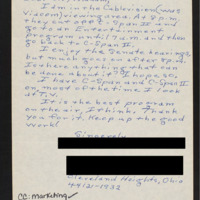 I am in the Cablevision (was
Viacom) viewing area. At 8 p.m.
they cut off C-Span II and
go to an Entertainment
program until 3 a.m. and then
go back to C-Span II.
I enjoy the Senate hearings,
but much goes on after 8 p.m.
Is there anything that can
be done about it? I hope so.
I have C-Span and C-Span II
on most of the time I look
at TV.
It is the best program
on the air I think. Thank
you for it. Keep up the good
work!
Sincerely
Cleveland Heights, Ohio
44121-1832
CC: marketing